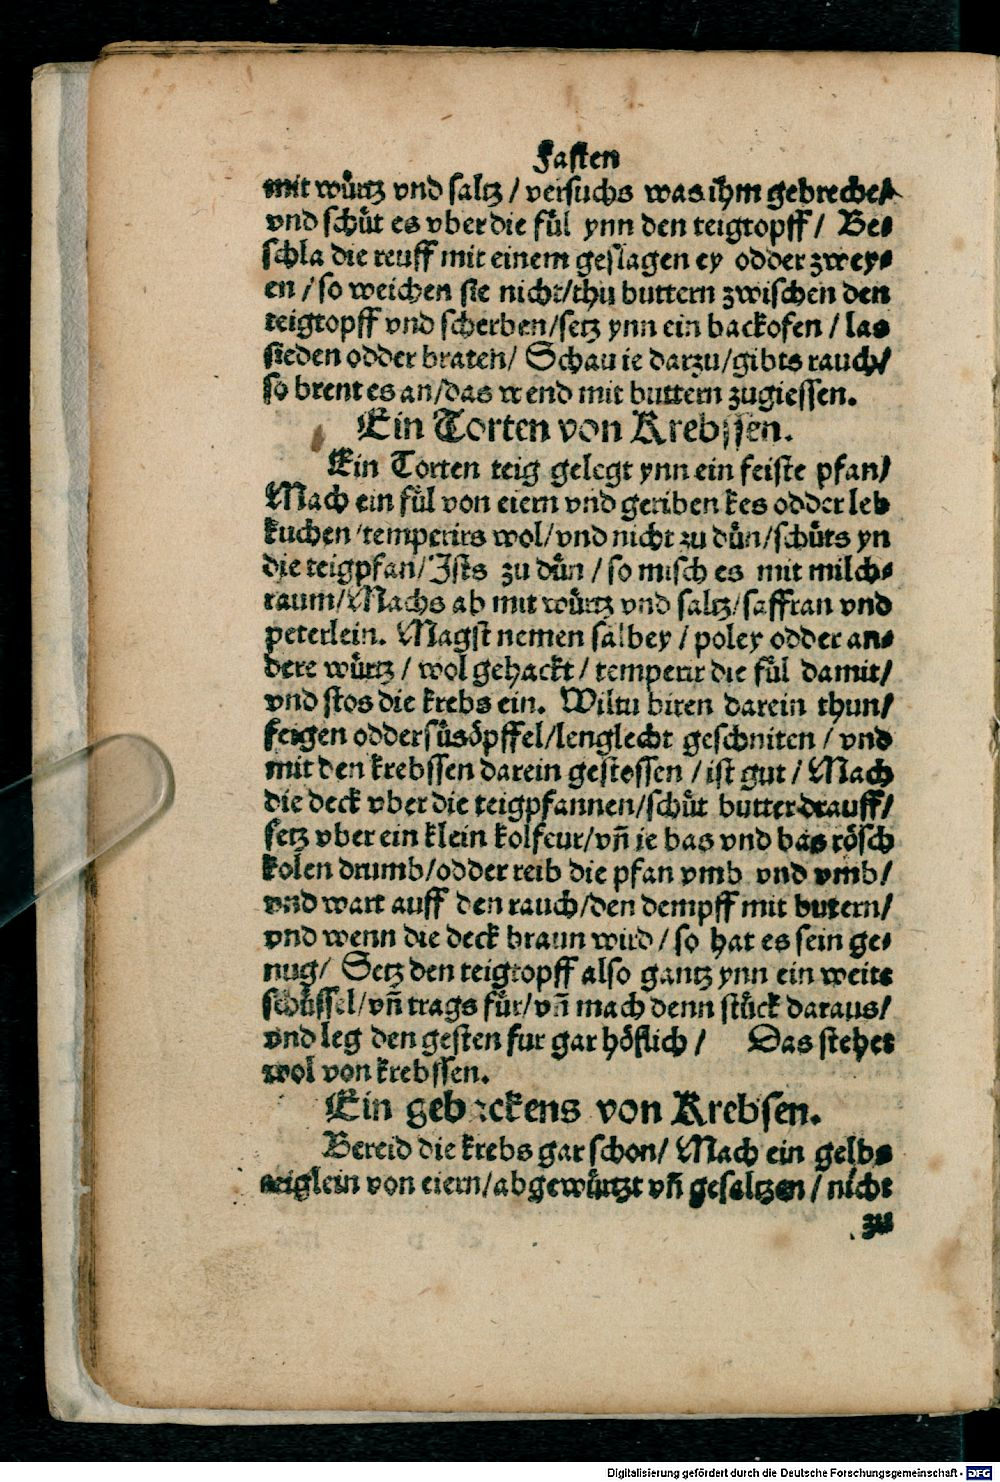 Fasten
mit wuͤrtz vnd saltz / versuchs was ihm gebreche/
vnd schuͤt es vber die fuͤl ynn den teigtopff / Be⸗
schla die reuff mit einem geslagen ey odder zwey⸗
en / so weichen sie nicht/thu buttern zwischen den
teigtopff vnd scherben/setz ynn ein backofen / las
sieden odder braten/ Schau ie darzu/gibts rauch/
so brent es an/das wend mit buttern zugiessen.
Ein Torten von Krebssen.
Ein Torten teig gelegt ynn ein feiste pfan/
Mach ein fuͤl von eiern vnd geriben kes odder leb
kuchen/temperirs wol/vnd nicht zu duͤn/schuͤts yn
die teigpfan/Ists zu duͤn / so misch es mit milch⸗
raum/Machs ab mit wuͤrtz vnd saltz/saffran vnd
peterlein. Magst nemen salbey / poley odder an⸗
dere wuͤrtz / wol gehackt / temperir die fuͤl damit/
vnd stos die krebs ein. Wiltu biren darein thun/
feigen odder suͤsoͤpffel/lenglecht geschniten / vnd
mit den krebssen darein gestossen / ist gut / Mach
die deck vber die teigpfannen/schuͤt butter drauff/
setz vber ein klein kolfeur/vn̄ ie bas vnd bas roͤsch
kolen drumb/odder reib die pfan vmb vnd vmb/
vnd wart auff den rauch/den dempff mit butern/
vnd wenn die deck braun wird / so hat es sein ge⸗
nug/ Setz den teigtopff also gantz ynn ein weite
schuͤssel/vn̄ trags fuͤr/vn̄ mach denn stuͤck daraus/
vnd leg den gesten fur gar hoͤflich / Das stehet
wol von krebssen.
Ein gebackens von Krebsen.
Bereid die krebs gar schon/ Mach ein gelbs
teiglein von eiern/abgewuͤrtzt vn̄ gesaltzen / nicht
zu
Digitalisierung gefördert durch die Deutsche Forschungsgemeinschaft - DFG